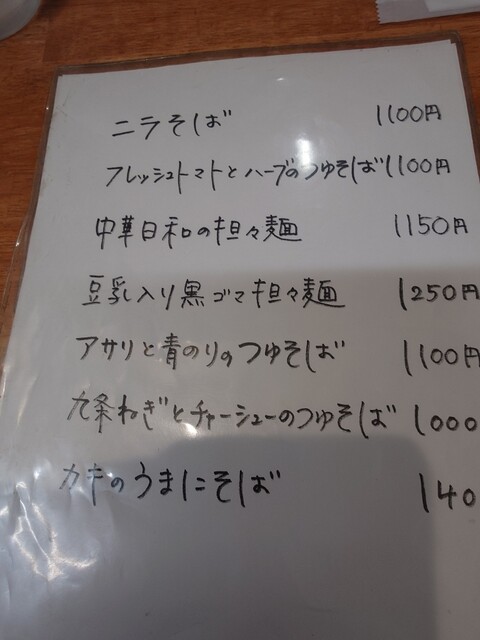 ニラそば 1100円
フレッシュトマトとハーブのつゆそば 1100円
中華日和の担々麺 1150円
豆乳入り黒ゴマ担々麺 1250円
アサリと青のりのつゆそば 1100円
九条ねぎとチャーシューのつゆそば 1000
カキのうまにそば 140